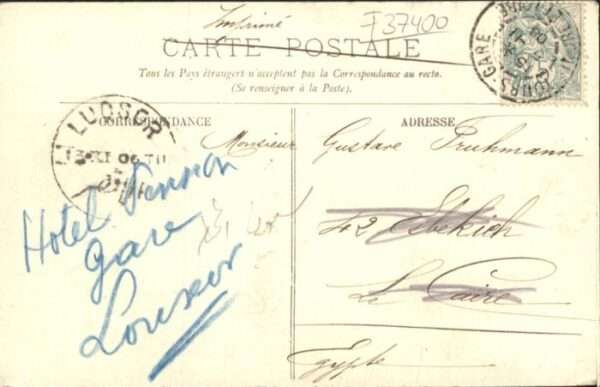 Imprimé
F37400
CARTE POSTALE
Tous les Pays étrangert n'acceptent pas la Correspondance au recto.
(Se renseigner à la Poste).
CORRESPONDANCE
ADRESSE
LUQSOR
TOURS-GARE
Monsieur Gustave Fruhmann
42 Esbekieh
Le Caire
Egypte
Hotel
Gare
Louxor